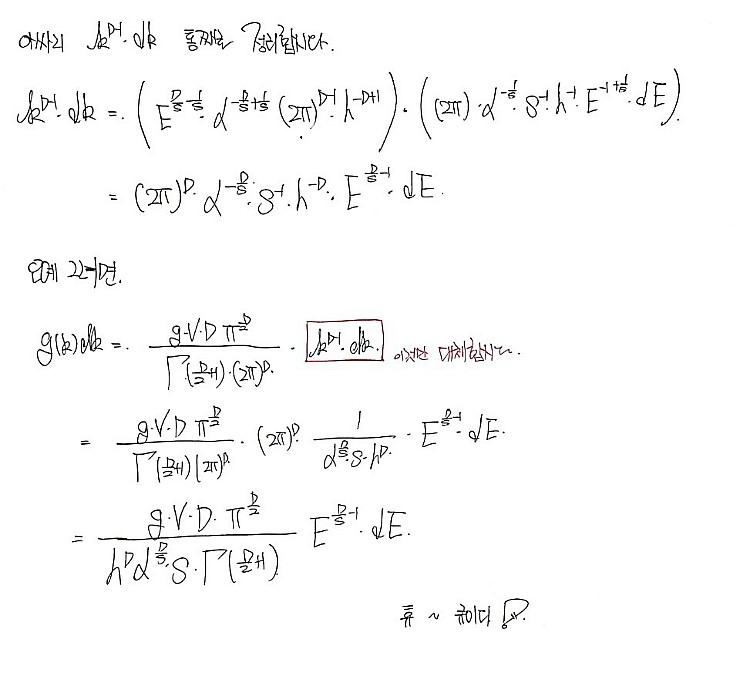 아싸리 k^{D-1}·dk 통째로 정리합시다.
k^{D-1}·dk = (E^{D/s-1/s}·α^{-D/s+1/s}(2π)^{D-1}·h^{-D+1})·((2π)·α^{-1/s}·s^{-1}·h^{-1}·E^{-1+1/s}·dE)
= (2π)^D·α^{-D/s}·s^{-1}·h^{-D}·E^{D/s-1}·dE.
g(k)dk = g·V·D π^{D/2} / Γ(D/2+1)·(2π)^D · k^{D-1}·dk. 이것만 대체합시다.
= g·V·D π^{D/2} / Γ(D/2+1)(2π)^D · (2π)^D 1 / α^{D/s}·s·h^D · E^{D/s-1}·dE.
= g·V·D·π^{D/2} / h^D α^{D/s}·s·Γ(D/2+1) E^{D/s-1}·dE.
휴 ~ 끝이다